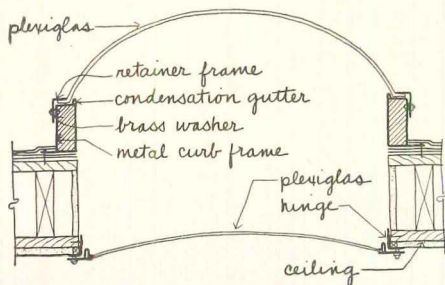 plexiglas
retainer frame
condensation gutter
brass washer
metal curb frame
plexiglas
hinge
ceiling